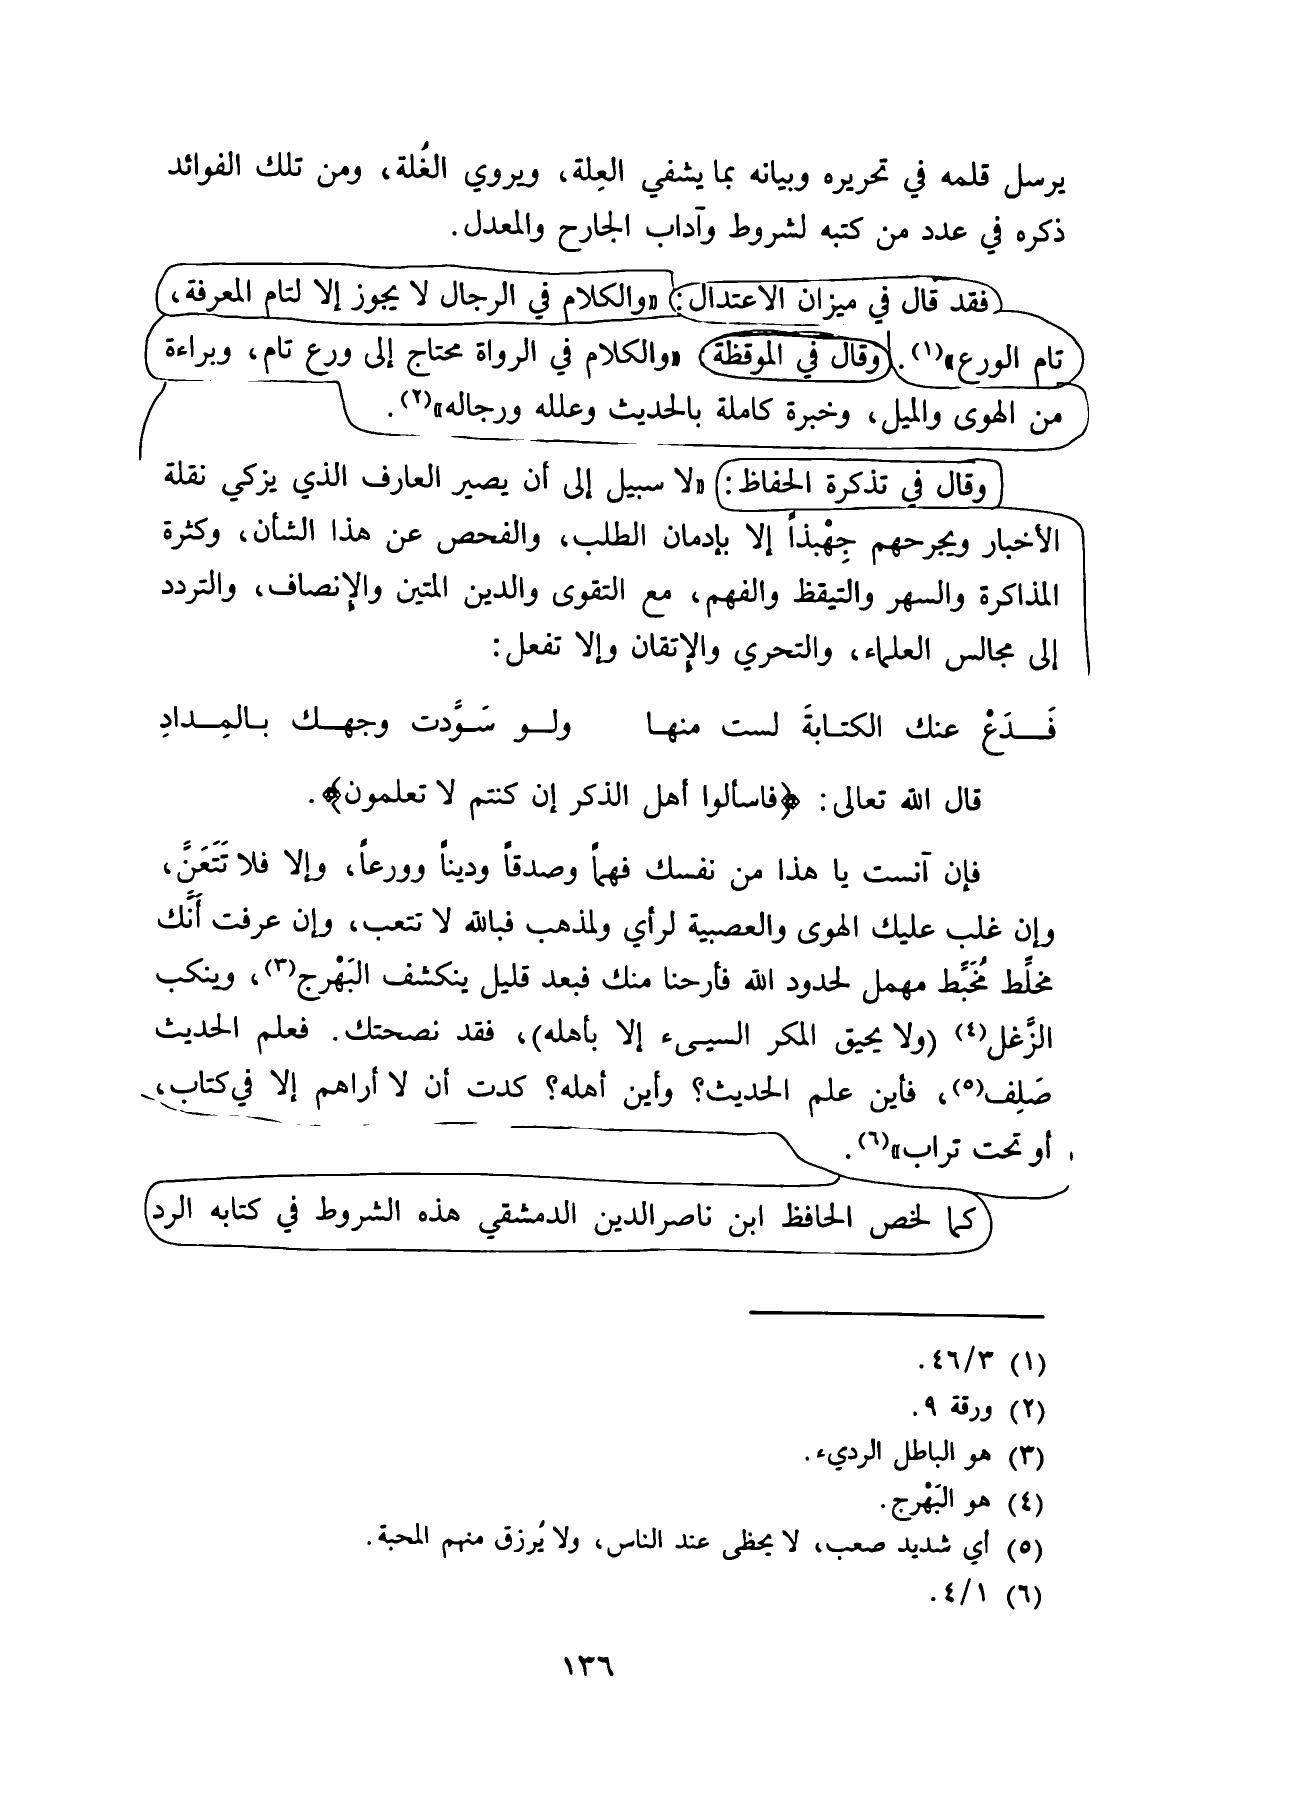 يرسل قلمه في تحريره وبيانه بما يشفي العِلة، ويروي الغُلة، ومن تلك الفوائد
ذكره في عدد من كتبه لشروط وآداب الجارح والمعدل.
فقد قال في ميزان الاعتدال: «والكلام في الرجال لا يجوز إلا لتام المعرفة،
تام الورع»(١). وقال في الموقظة «والكلام في الرواة محتاج إلى ورع تام، وبراءة
من الهوى والميل، وخبرة كاملة بالحديث وعلله ورجاله»(٢).
وقال في تذكرة الحفاظ: «لا سبيل إلى أن يصير العارف الذي يزكي نقلة
الأخبار ويجرحهم جِهْبذاً إلا بإدمان الطلب، والفحص عن هذا الشأن، وكثرة
المذاكرة والسهر والتيقظ والفهم، مع التقوى والدين المتين والإنصاف، والتردد
إلى مجالس العلماء، والتحري والإتقان وإلا تفعل:
فَـدَعْ عنك الكتابةَ لست منها ولو سَوَّدت وجهك بالمِدادِ
قال الله تعالى: ﴿فاسألوا أهل الذكر إن كنتم لا تعلمون﴾.
فإن آنست يا هذا من نفسك فهماً وصدقاً وديناً وورعاً، وإلا فلا تَتَعَنَّ،
وإن غلب عليك الهوى والعصبية لرأي ولمذهب فبالله لا تتعب، وإن عرفت أَنَّك
مخلِّط مُخَبِّط مهمل لحدود الله فأرحنا منك فبعد قليل ينكشف البَهْرج(٣)، وينكب
الزَّغل(٤) (ولا يحيق المكر السيىء إلا بأهله)، فقد نصحتك. فعلم الحديث
صَلِف(٥)، فأين علم الحديث؟ وأين أهله؟ كدت أن لا أراهم إلا في كتاب،
أو تحت تراب»(٦).
كما لخص الحافظ ابن ناصر الدين الدمشقي هذه الشروط في كتابه الرد
(١) ٤٦/٣.
(٢) ورقة ٩.
(٣) هو الباطل الرديء.
(٤) هو البَهْرج.
(٥) أي شديد صعب، لا يحظى عند الناس، ولا يُرزق منهم المحبة.
(٦) ٤/١.
١٣٦